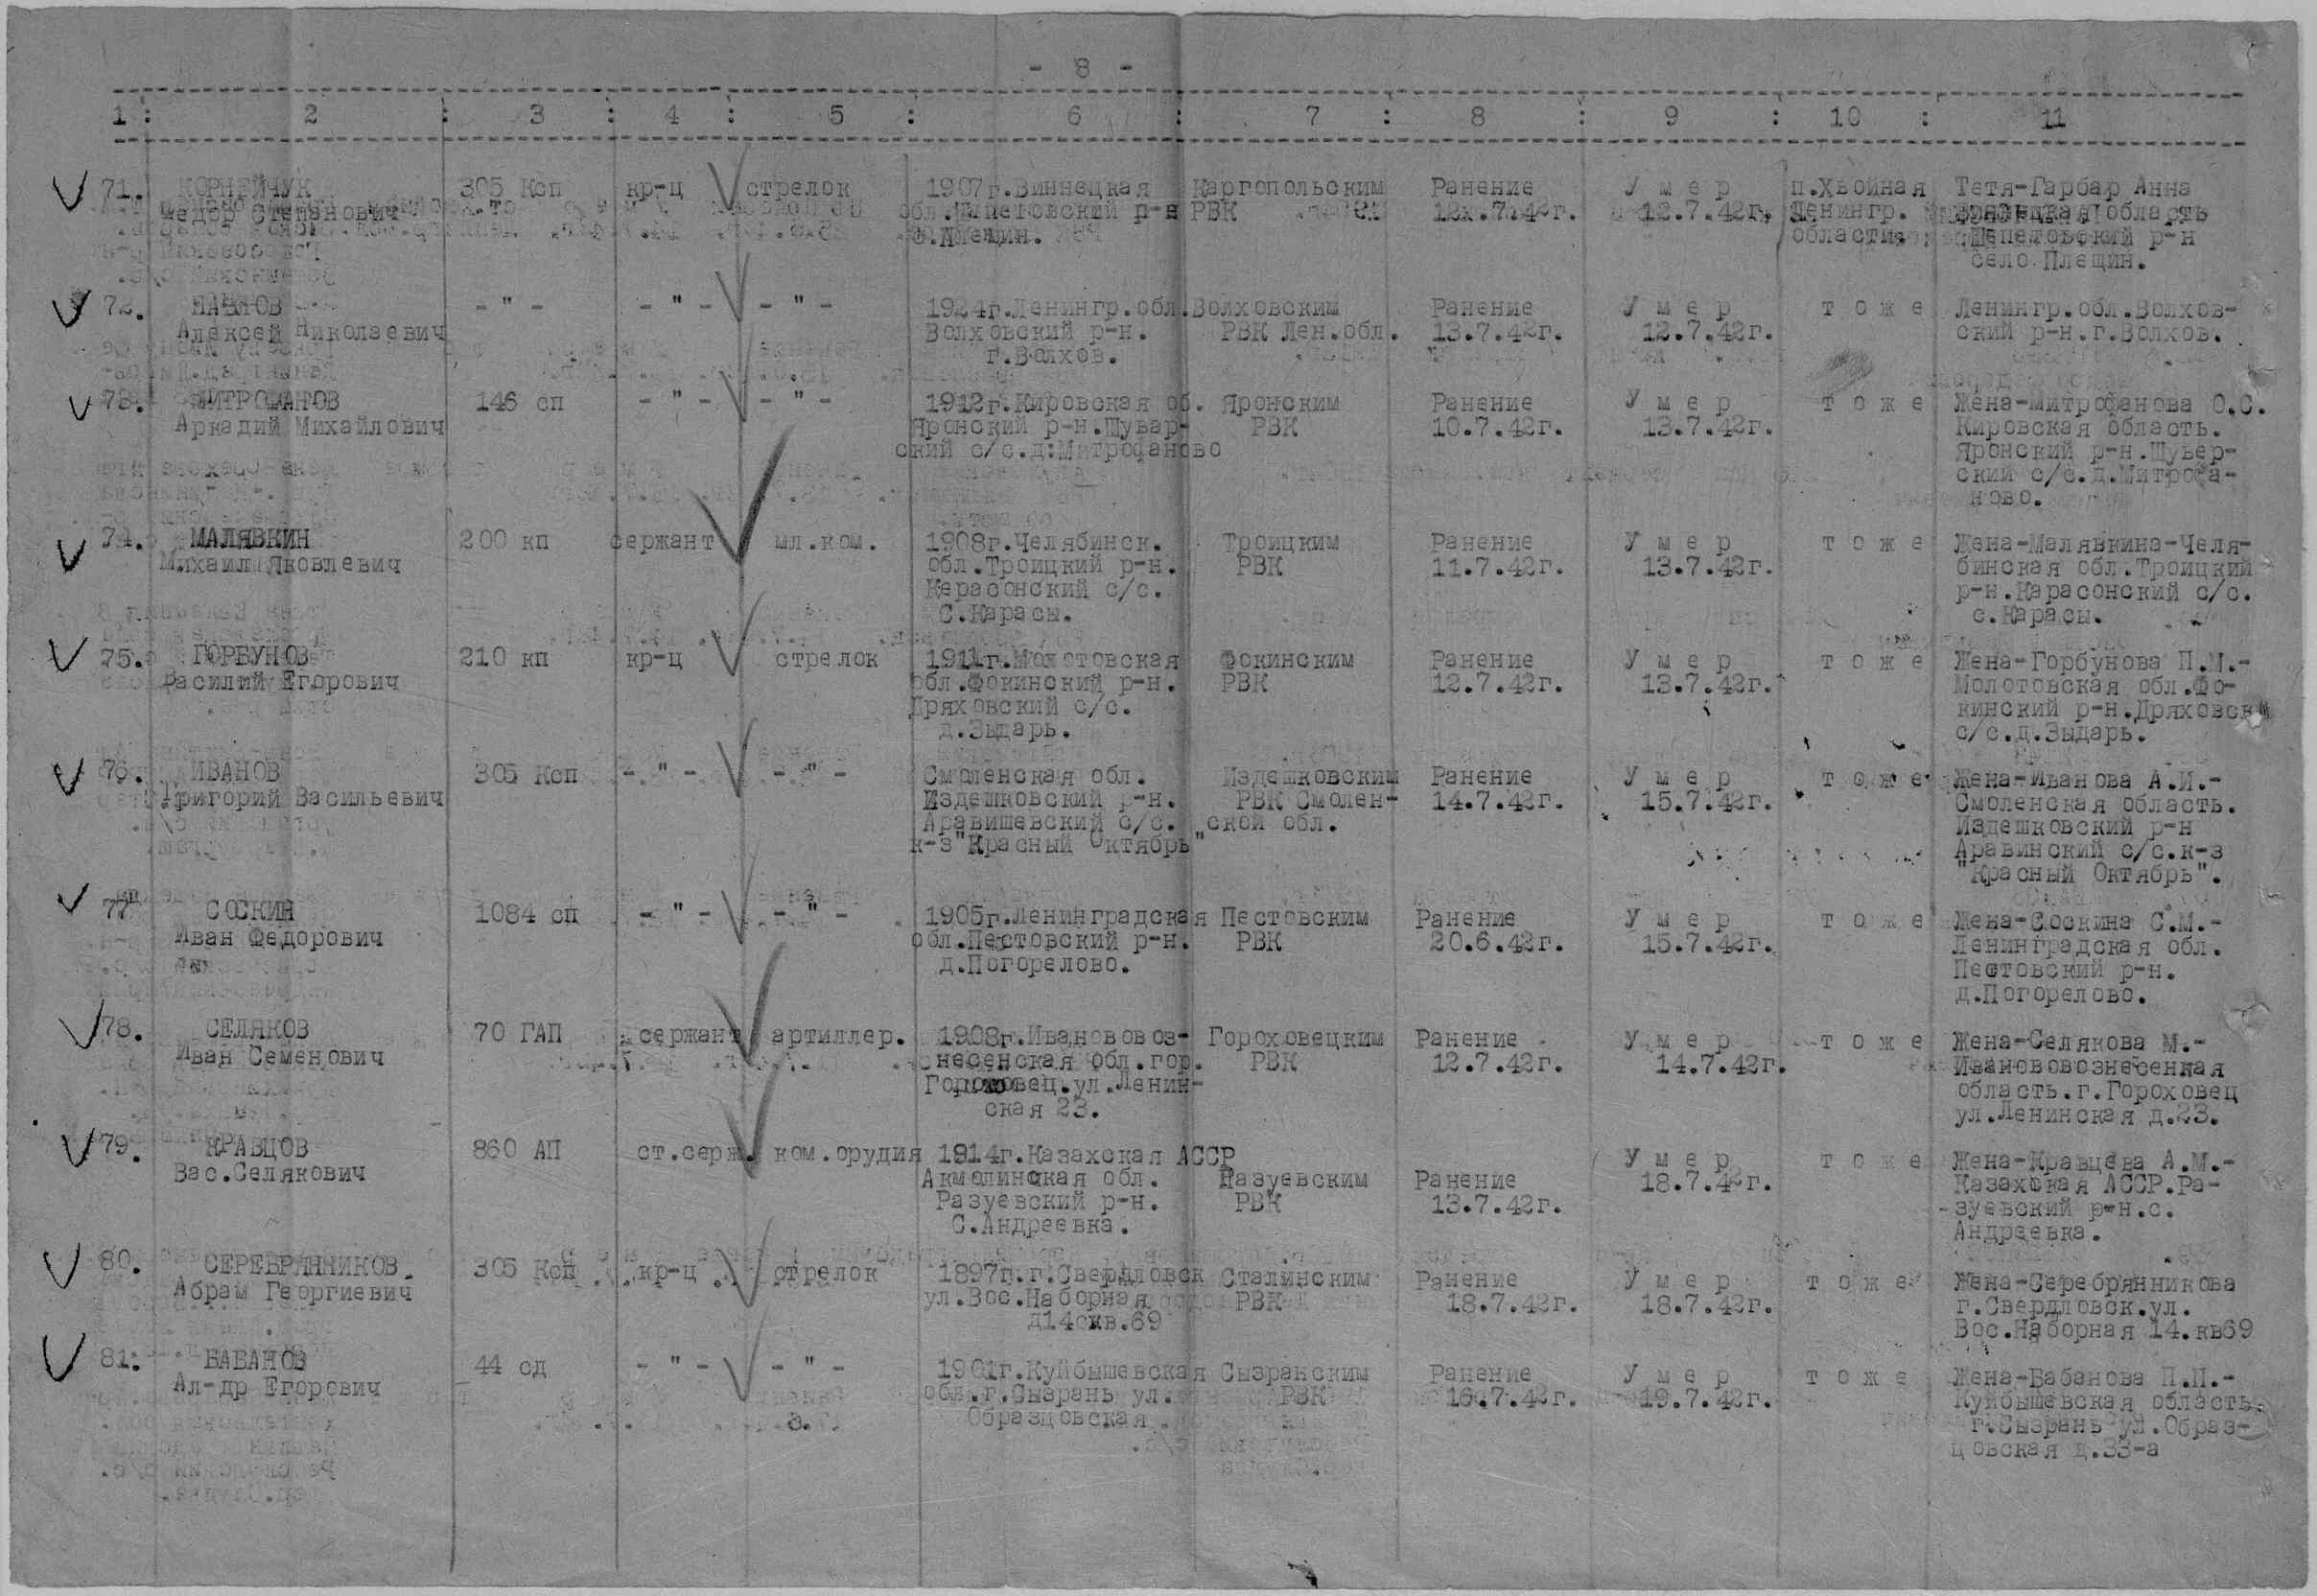 - 8 -
1 : 2 : 3 : 4 : 5 : 6 : 7 : 8 : 9 : 10 : 11
71. КОРНЕЙЧУК 305 Ксп кр-ц стрелок 1907г.Винницкая Каргопольским Ранение У м е р п.Хвойная Тетя-Гарбар Анна
Федор Степанович обл.Шепетовский р-н РВК 12.7.42г. 12.7.42г. Ленингр. область
с.Плещин. области Шепетовский р-н
село Плещин.
72. ПАВЛОВ - " - - " - - " - 1924г.Ленингр.обл.Волховским Ранение У м е р т о ж е Ленингр.обл.Волхов-
Алексей Николаевич Волховский р-н. РВК Лен.обл. 13.7.42г. 12.7.42г. ский р-н.г.Волхов.
г.Волхов.
73. МИТРОФАНОВ 146 сп - " - - " - 1912г.Кировская об. Яронским Ранение У м е р т о ж е Жена-Митрофанова О.С.
Аркадий Михайлович Яронский р-н.Шувар- РВК 10.7.42г. 13.7.42г. Кировская область.
ский с/с.д:Митрофаново Яронский р-н.Шувер-
ский с/с.д.Митрофа-
ново.
74. МАЛЯВКИН 200 кп сержант мл.ком. 1908г.Челябинск. Троицким Ранение У м е р т о ж е Жена-Малявкина-Челя-
Михаил Яковлевич обл.Троицкий р-н. РВК 11.7.42г. 13.7.42г. бинская обл.Троицкий
Керасонский с/с. р-н.Карасонский с/с.
С.Карасы. с.Карасы.
75. ГОРБУНОВ 210 кп кр-ц стрелок 1911г.Молотовская Фокинским Ранение У м е р т о ж е Жена-Горбунова П.М.-
Василий Егорович обл.Фокинский р-н. РВК 12.7.42г. 13.7.42г. Молотовская обл.Фо-
Дряховский с/с. кинский р-н.Дряховский
д.Зыдарь. с/с.д.Зыдарь.
76. ИВАНОВ 305 Ксп - " - - " - Смоленская обл. Издешковским Ранение У м е р т о ж е Жена-Иванова А.И.-
Григорий Васильевич Издешковский р-н. РВК Смолен- 14.7.42г. 15.7.42г. Смоленская область.
Аравишевский с/с. ской обл. Издешковский р-н
к-з"Красный Октябрь" Аравинский с/с.к-з
"Красный Октябрь".
77 СОСКИН 1084 сп - " - - " - 1905г.Ленинградская Пестовским Ранение У м е р т о ж е Жена-Соскина С.М.-
Иван Федорович обл.Пестовский р-н. РВК 20.6.42г. 15.7.42г. Ленинградская обл.
д.Погорелово. Пестовский р-н.
д.Погорелово.
78. СЕЛЯКОВ 70 ГАП сержант артиллер. 1908г.Ивановсвоз- Гороховецким Ранение У м е р т о ж е Жена-Селякова М.-
Иван Семенович несенская обл.гор. РВК 12.7.42г. 14.7.42г. Ивановсвознесенкая
Гороховец.ул.Ленин- область.г.Гороховец
ская 23. ул.Ленинская д.23.
79. КРАВЦОВ 860 АП ст.серж. ком.орудия 1914г.Казахская АССР У м е р т о ж е Жена-Кравцева А.М.-
Вас.Селякович Акмолинская обл. Разуевским Ранение 18.7.42г. Казахская АССР.Ра-
Разуевский р-н. РВК 13.7.42г. зуевский р-н.с.
С.Андреевка. Андреевка.
80. СЕРЕБРЯННИКОВ 305 Ксп кр-ц стрелок 1897г.г.Свердловск Сталинским Ранение У м е р т о ж е Жена-Серебрянникова
Абрам Георгиевич ул.Вос.Наборная РВК 18.7.42г. 18.7.42г. г.Свердловск.ул.
кв.69 Вос.Наборная 14.кв69
81. БАБАНОВ 44 сд - " - - " - 1901г.Куйбышевская Сызранским Ранение У м е р т о ж е Жена-Бабанова П.П.-
Ал-др Егорович обл.г.Сызрань ул. РВК 16.7.42г. 19.7.42г. Куйбышевская область.
Образцовская г.Сызрань ул.Образ-
цовская д.33-а